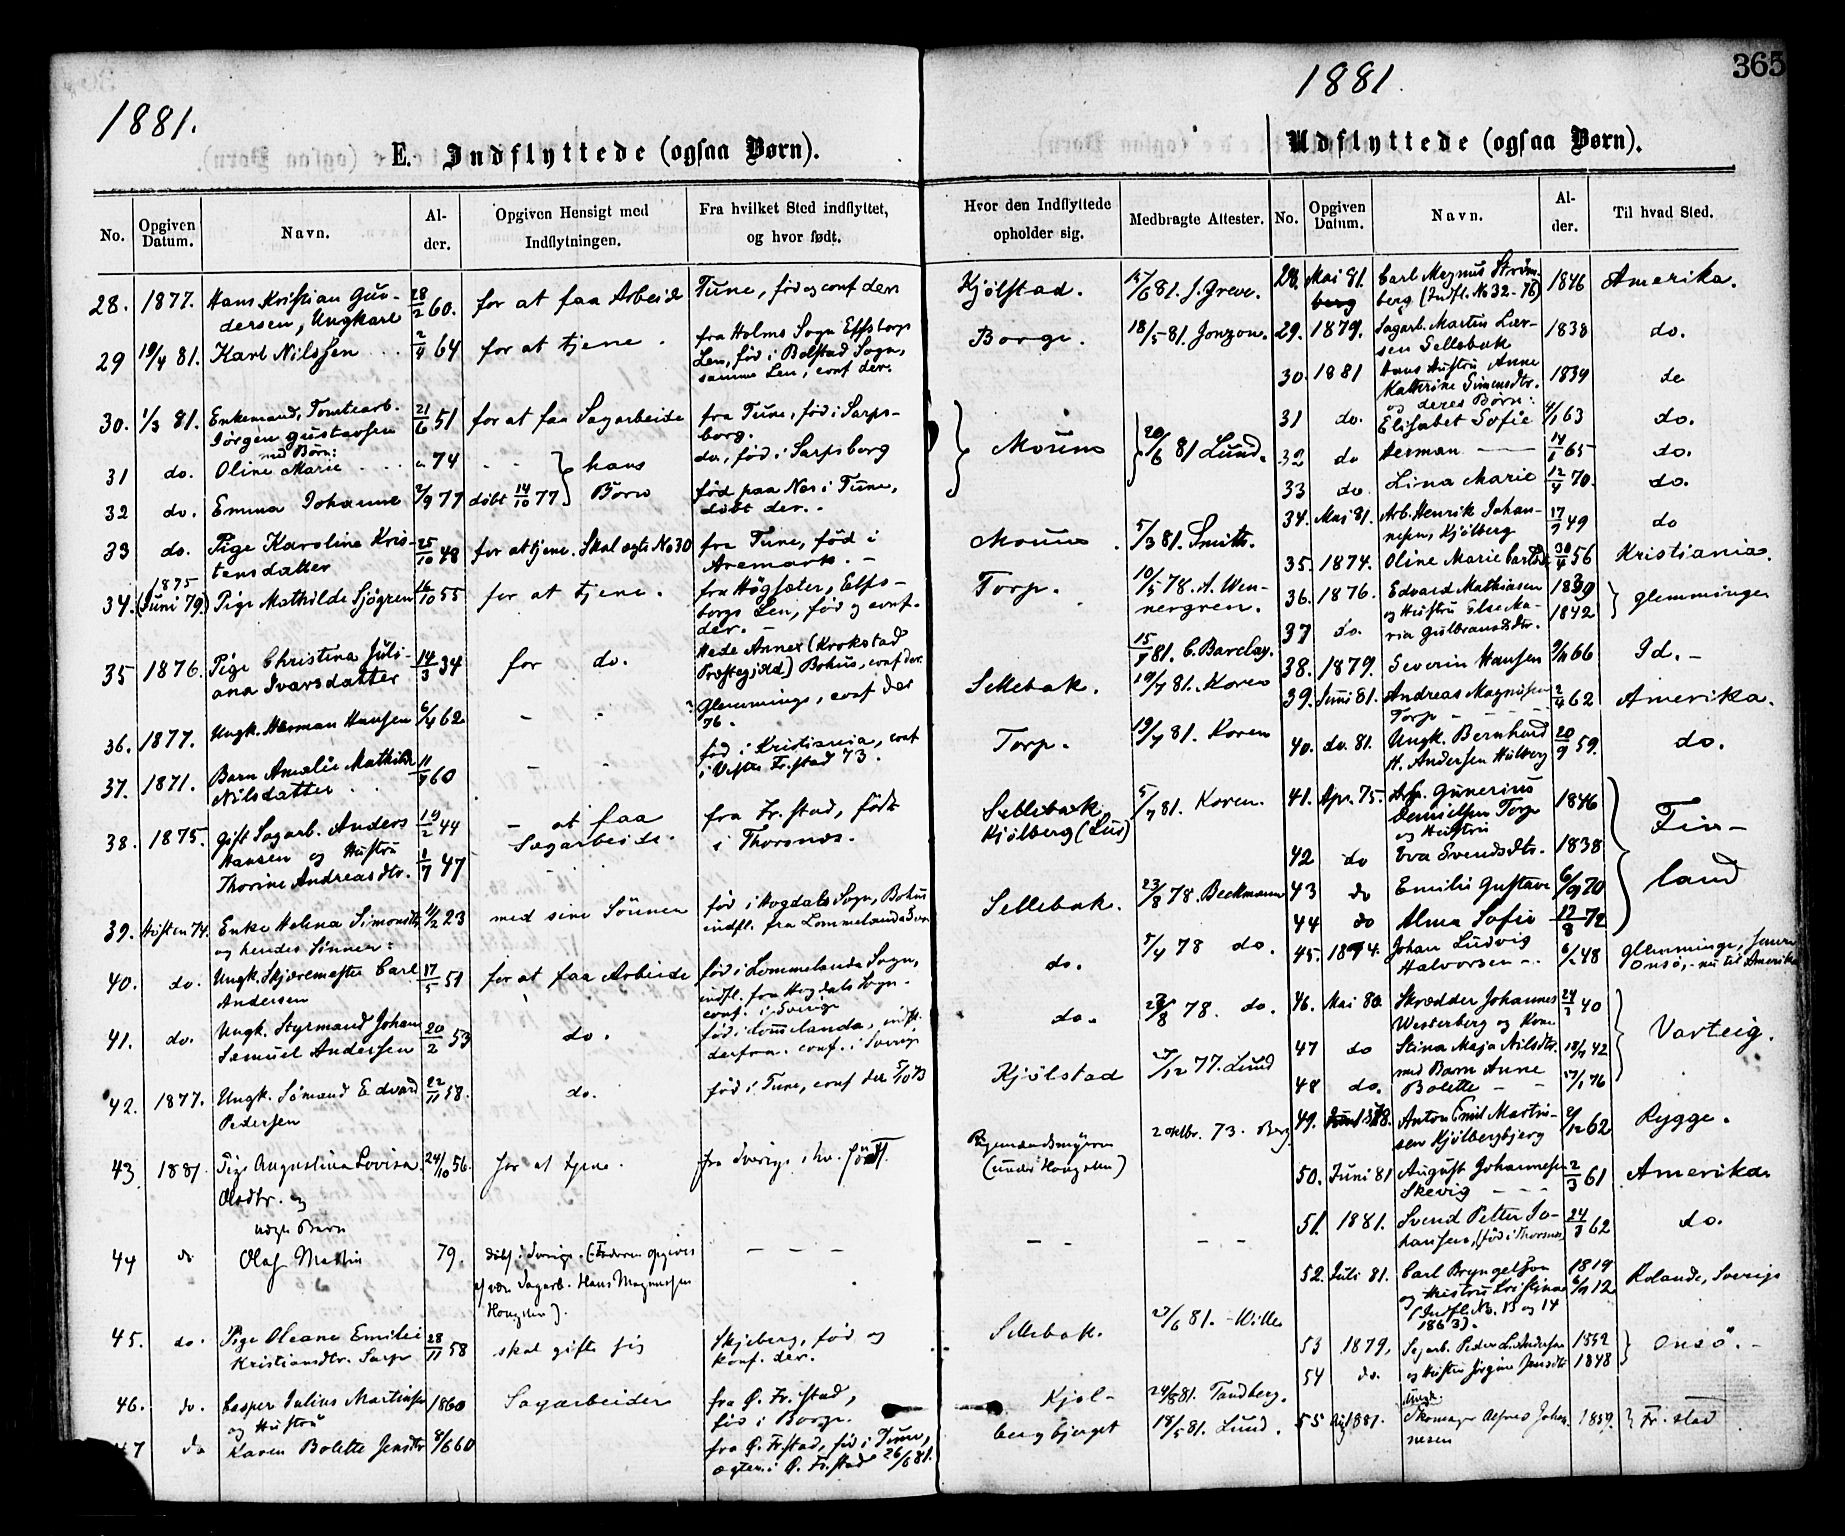 365
1881.
1881.
E. Indflyttede (ogsaa Børn).
Udflyttede (ogsaa Børn).
No. Opgiven Datum. Navn. Alder. Opgiven Hensigt med Indflytningen. Fra hvilket Sted indflyttet, og hvor født.
Hvor den Indflyttede opholder sig. Medbragte Attester. No. Opgiven Datum. Navn. Alder. Til hvad Sted.
28. 1877. Hans Kristian Gundersen, Ungkarl 28/2 60. for at faa Arbeide Tune, fød og conf der
Kjølstad. 17/6 81. J. Greve.
29 19/4 81. Karl Nilssen 2/4 64 for at tjene. fra Holms Sogn Elfsborgs Len, fød i Bolstad Sogn, samme Len, conf der.
Borge. 18/5-81. Jonzon.
30. 1/3 81. Enkemand, Tomtearb. Jørgen Gustavsen med Børn: 21/6 51 for at faa Sagarbeide fra Tune, fød i Sarpsborg.
Moum 20/6 81 Lund.
31 do. Oline Marie 74 hans Børn do, fød i Sarpsborg
32 do. Emma Johanne 2/9 77 døbt 14/10 77 fød paa Nes i Tune, døbt der.
33 do. Pige Karoline Kristensdatter 25/10 48 for at tjene. Skal ægte No 30 fra Tune, fød i Aremark.
Moum 5/3 81. Smith.
34. 1875 (Juni 79) Pige Mathilde Sjögren 16/10 55 for at tjene. fra Högsäter, Elfsborgs Len, fød og conf. der.
Torp. 10/5 78. A. Wennergren.
35 1876. Pige Christina Juliana Ivarsdatter 14/3 34 for do. Hede Annex (Krokstad Præstegjeld) Bohus, conf der.
15/8 81. C. Barclay.
36. 1877. Ungk. Herman Hansen 6/4 62 Glemminge, conf der 76.
Sellebak. 19/7 81. Koren
37. 1871. Barn Amalie Mathilde Nilsdatter 11/8 60 fød i Kristiania, conf i Vestre Fr.stad 73.
Torp. 19/7 81. Koren
38. 1875. Gift Sagarb. Anders Hansen og Hustru 19/2 44 at faa Sagarbeide. fra Fr.stad, født i Thorsnes.
Thorine Andreasdtr. 1/7 47
Sellebak, Kjølberg (Lus) 5/7 81. Koren.
39. Høsten 74. Enke Helena Simonsdtr og hendes Sønner: 11/2 23 med sine Sønner fød i Hogdals Sogn, Bohus indfl. fra Lommelanda Sogn
Sellebak. 23/8 78 Beckmann
40. do. Ungk. Skjæremester Carl Andersen 17/5 51 for at faa Arbeide fød i Lommelanda Sogn, indfl. fra Hogdals Sogn. conf. i Sverige
do. 5/4 78 do.
41. do. Ungk. Styrmand Johan Samuel Andersen 20/2 53 do. fød i Lommelanda, indfl. derfra. conf. i Sverige
do. 23/8 78. do.
42. 1877. Ungk. Sømand Edvard Pedersen 22/11 58. do. fød i Tune, conf der 5/10 73
Kjølstad 77. Lund
43 1881. Pige Augustina Lovisa Olsdtr. og 24/10 56. for at tjene. fra Sverige
(under Hougsten) 2 oktbr. 73. Berg
uægte Barn
44 do Olaf Martin 79. døbt i Sverige. (Faderen opgives at være Sagarb. Hans Magnussen Hougsten).
45. do. Pige Oleane Emilie Kristiansdtr. Sarp 28/11 58 skal gifte sig Skjeberg, fød og konf. der.
Sellebak. 27/6 81. Wille
46. do. Casper Julius Martinsen og Hustru 1860 Sagarbeider fra Ø. Fr.stad, fød i Borge.
Kjølbergbjerget 24/5 81. Tandberg.
47 do Karen Bolette Jensdtr 8/6 60 fra Ø. Fr.stad, fød i Tune, ægtev. i Ø. Fr.stad 26/6 81.
18/5 81. Lund.
28. Mai 81. Carl Magnus Strømberg (Indfl. No 32-76) 1846 Amerika.
29. 1879. Sagarb. Martus Larsen Sellebak 1838 do.
30. 1881 Hans Hustru Anne Katherine Simensdtr. og deres Børn: 1839 do
31 do. Elisabet Sofie 4/1 63 do.
32 do Herman 14/1 65 do.
33 do Lina Marie 12/4 70. do.
34. Mai 81. Arb. Henrik Johannesen, Kjølberg 17/7 49 do
35. 1874. Oline Marie Carlsd. 30/4 56 Kristiania.
36. 1876. Edvard Mathiasen 1839 Glemminge
37 do. og Hustru Else Maria Gulbrandsdtr. 1842
38. 1879. Severin Hansen 9/11 66 Id.
39. Juni 81. Andreas Magnussen Torp 2/4 62 Amerika.
40. do. 81. Ungk. Bernhard H. Andersen Holberg 20/9 59. do.
41. Apr. 75. Arb. Gunerius Danielsen Torp og Hustru 1846 Finland
42 do Eva Svendsdtr. 1838
43 do Emilie Gustava 6/9 70
44 do Alma Sofie 17/8 72
45. 1874. Johan Ludvig Halvorsen 48 Glemminge, senere Onsø, nu til Amerika
46. Mai 80. Skrædder Johannes Westerberg og Kone 24/3 40 Varteig.
47 do Stina Maja Nilsdtr. 18/7 42
48 do. med Barn Anne Bolette 27/1 76
49. 1878. Anton Emil Martinsen Kjølbergbjerg 62 Rygge.
50. Juni 81 August Johannesen Skevig 2/3 61 Amerika
51. 1881. Svend Petter Johansen, (fød i Thorsnes) 24/3 62 do.
52. Juli 81. Carl Bryngelson 1819 og Hustru Kristina 6/9 12 (Indfl. No. 13 og 14 1863). Rolanda, Sverige
53 1879, Sagarb. Peder L. Andersen 1852 Onsø.
54 do. og Hustru Jørgine Jensdtr 1848
55 1881. Ungk. Skomager Alfred Johannesen 1859. Fr.stad